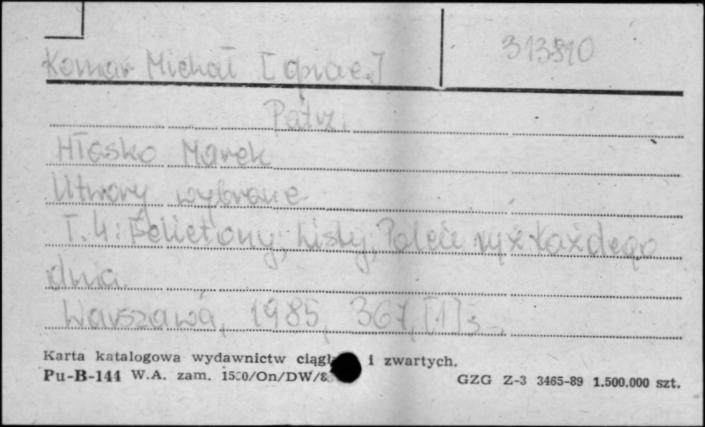 Komar Michał [oprac.]
313810
Patrz.
Hłasko Marek
Utwory wybrane
T. 4: Felietony; Listy; Palcie ryż każdego
dnia
Warszawa, 1985, 367, [1] s.
Karta katalogowa wydawnictw ciągł i zwartych.
Pu-B-144 W.A. zam. /On/DW/8 GZG Z-3 3465-89 1.500.000 szt.